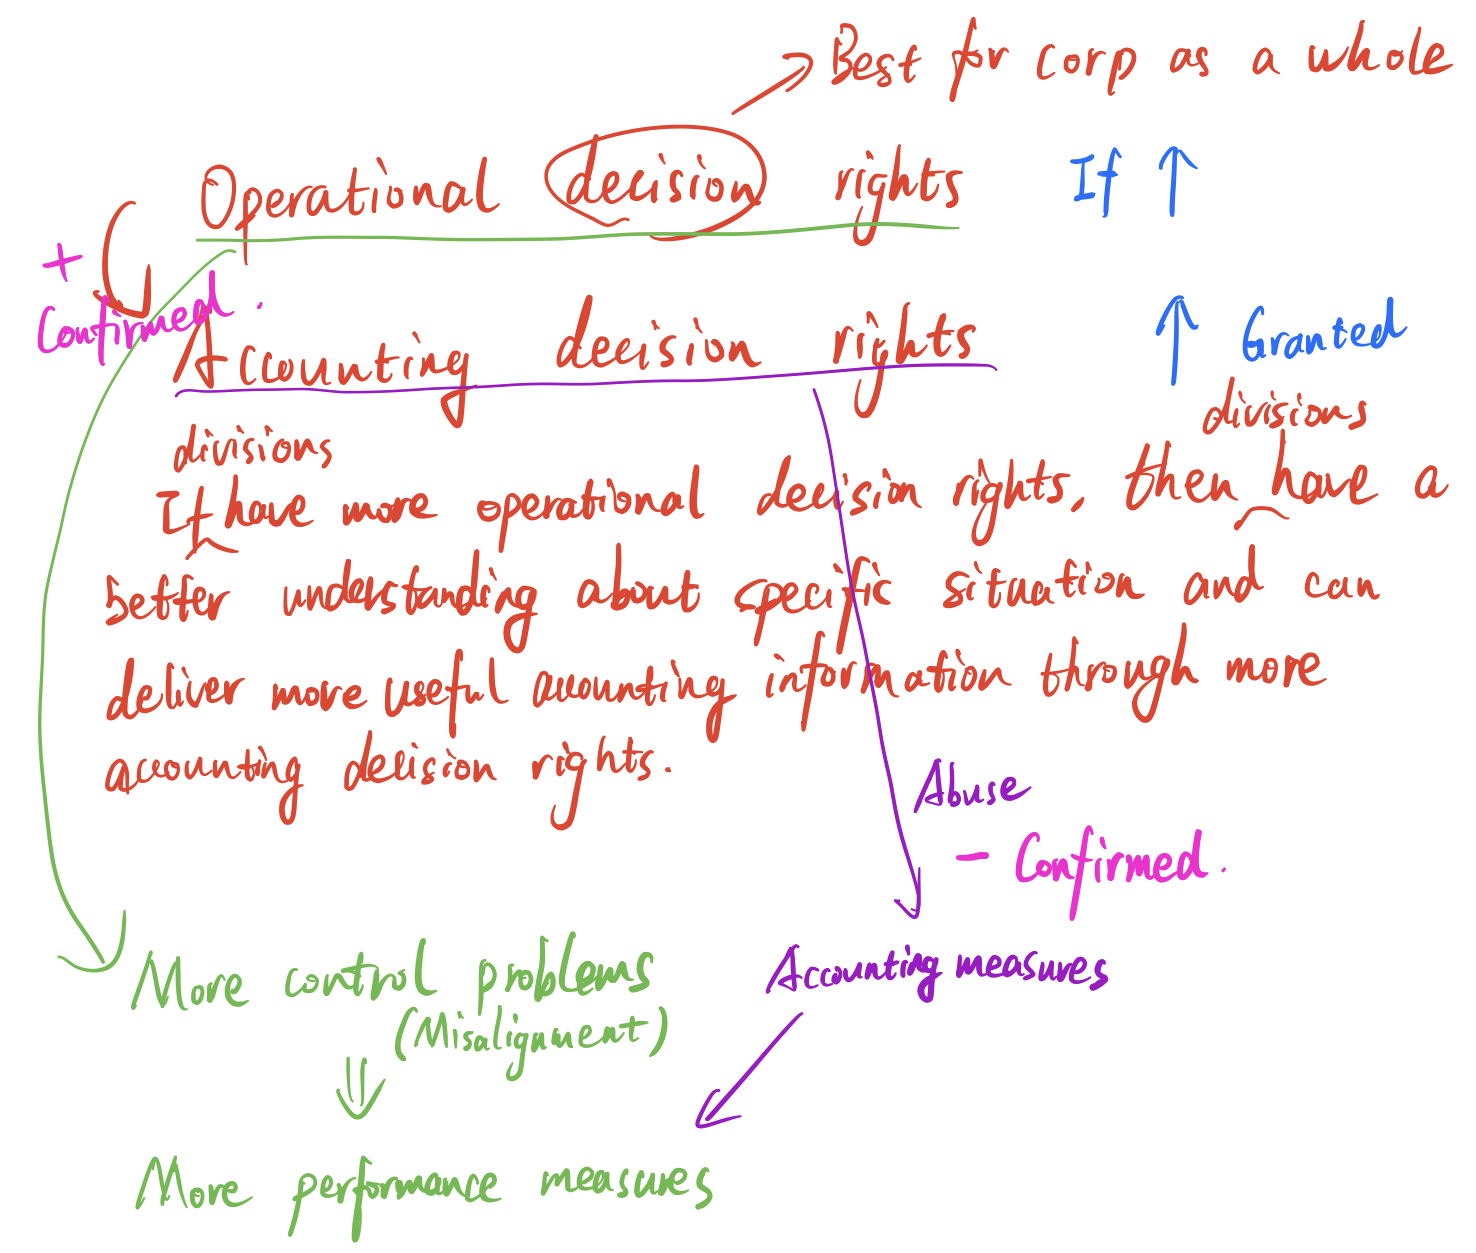 Best for corp as a whole
Operational decision rights If ↑
+
Confirmed.
Accounting decision rights ↑ Granted
divisions divisions
If have more operational decision rights, then have a
better understanding about specific situation and can
deliver more useful accounting information through more
accounting decision rights.
Abuse
- Confirmed.
More control problems
(Misalignment)
Accounting measures
More performance measures